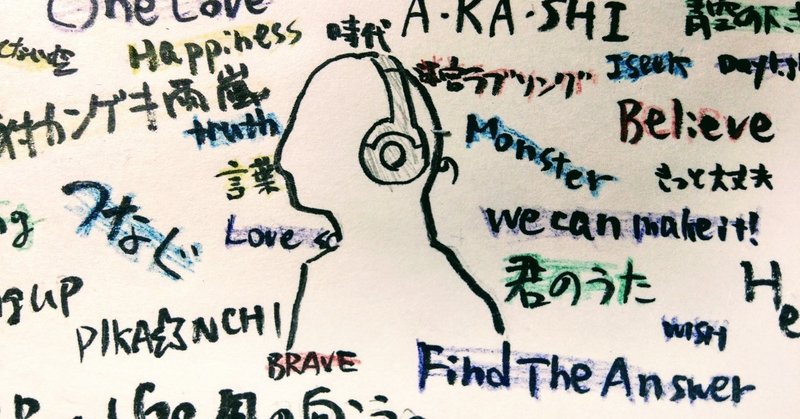 One Love
A・KA・SHI
時代
青空の下、
Happiness
迷宮ラブソング
I seek
カンゲキ雨嵐
truth
Believe
Monster
言葉
きっと大丈夫
つなぐ
Love so
we can make it!
君のうた
He
g up
PIKA☆NCHI
WISH
BRAVE
Find The Answer